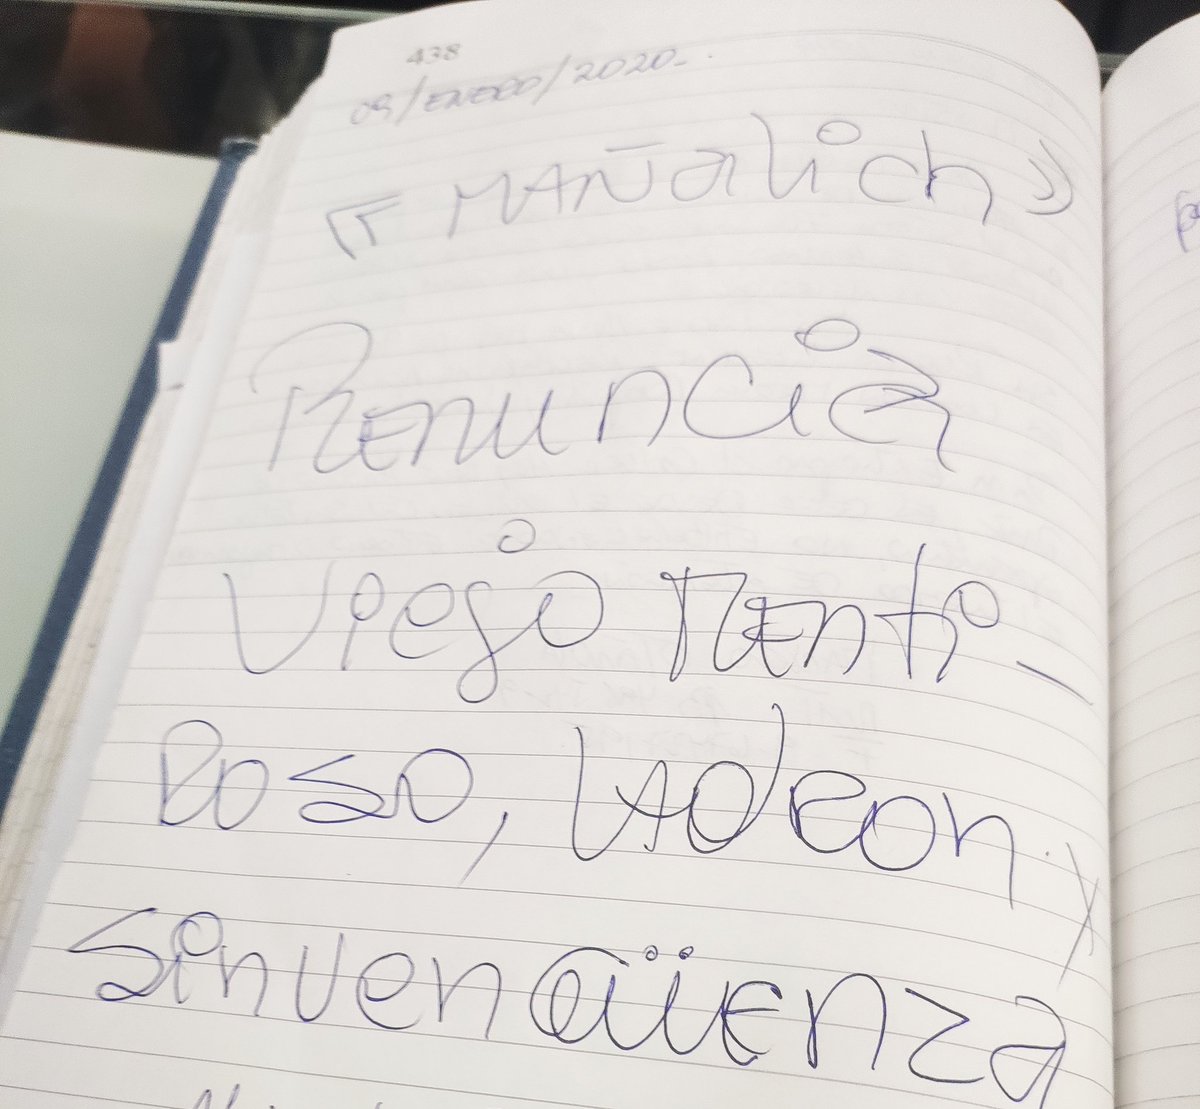 438
09/ENERO/2020-.
"MAÑalich"
Renuncia
Viejo Menti-
Roso, LAdron y
Sinvengüenza